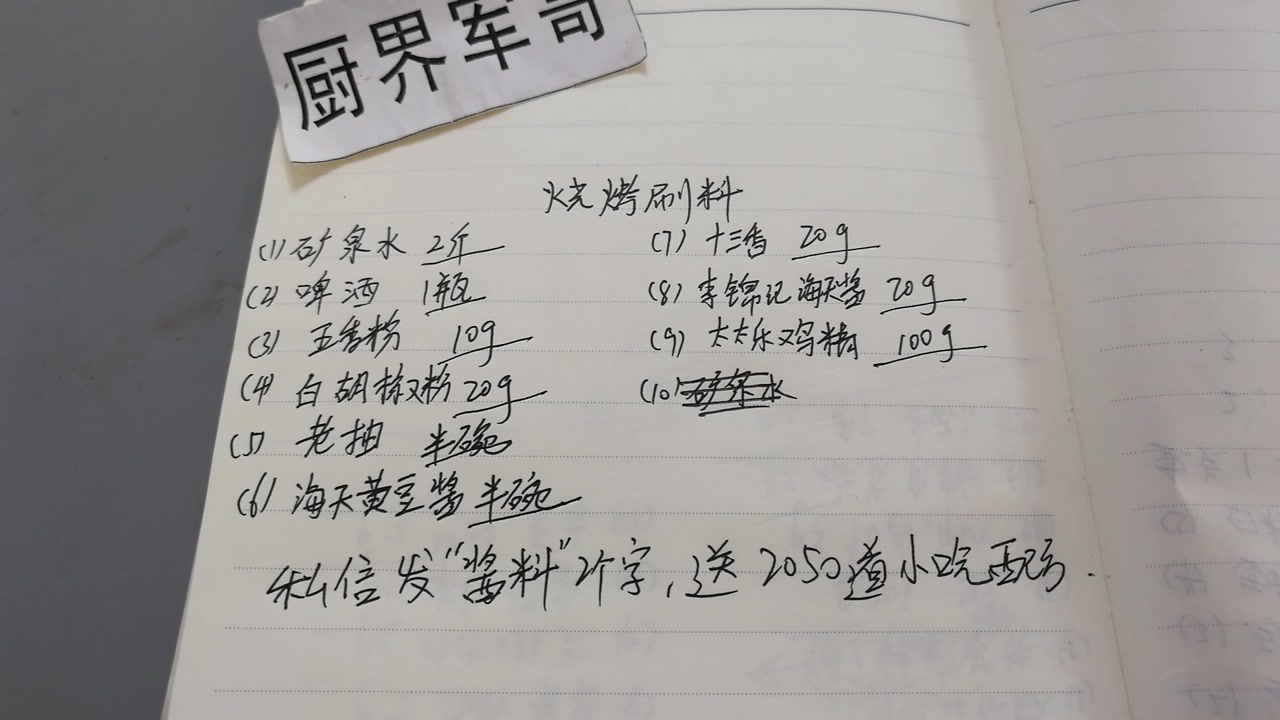 厨界军哥
烧烤刷料
(1) 矿泉水 2斤
(2) 啤酒 1瓶
(3) 五香粉 10g
(4) 白胡椒粉 20g
(5) 老抽 半碗
(6) 海天黄豆酱 半碗
(7) 十三香 20g
(8) 李锦记海天酱 20g
(9) 太太乐鸡精 100g
(10)
私信发“酱料”2个字,送2050道小吃配方.